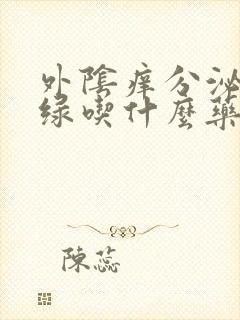 外陰痒分泌
緑喫什麼藥
陳蕊